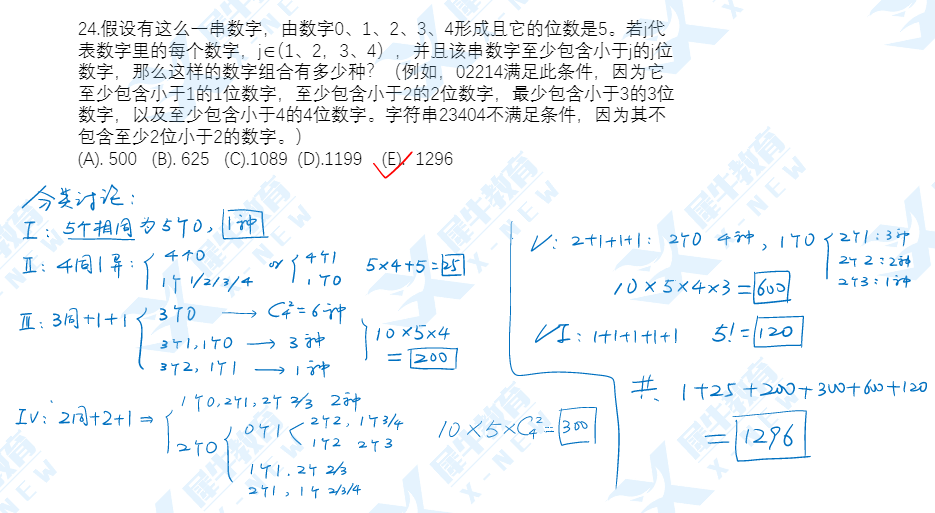 24.假设有这么一串数字，由数字0、1、2、3、4形成且它的位数是5。若j代
表数字里的每个数字，j∈(1、2，3、4），并且该串数字至少包含小于j的j位
数字，那么这样的数字组合有多少种？（例如，02214满足此条件，因为它
至少包含小于1的1位数字，至少包含小于2的2位数字，最少包含小于3的3位
数字，以及至少包含小于4的4位数字。字符串23404不满足条件，因为其不
包含至少2位小于2的数字。）
(A). 500 (B). 625 (C).1089 (D).1199 (E). 1296
分类讨论：
I：5个相同为5个0，1种
II：4同1异：
4个0
1个1/2/3/4
or
4个1
1个0
5×4+5=25
III：3同+1+1
3个0 → C₄²=6种
3个1,1个0 → 3种
3个2,1个1 → 1种
10×5×4
=200
IV：2同+2+1⇒
1个0,2个1,2个2/3 2种
2个0
0个1
2个2，1个3/4
1个2 2个3
1个1.2个2/3
2个1，1个2/3/4
10×5×C₄²=300
V：2+1+1+1：2个0 4种，1个0
2个1：3种
2个2：2种
2个3：1种
10×5×4×3=600
VI：1+1+1+1+1 5!=120
共 1+25+200+300+600+120
=1296
犀牛教育
X-NEW
犀牛教育
X-NEW
犀牛教育
X-NEW
犀牛教育
X-NEW